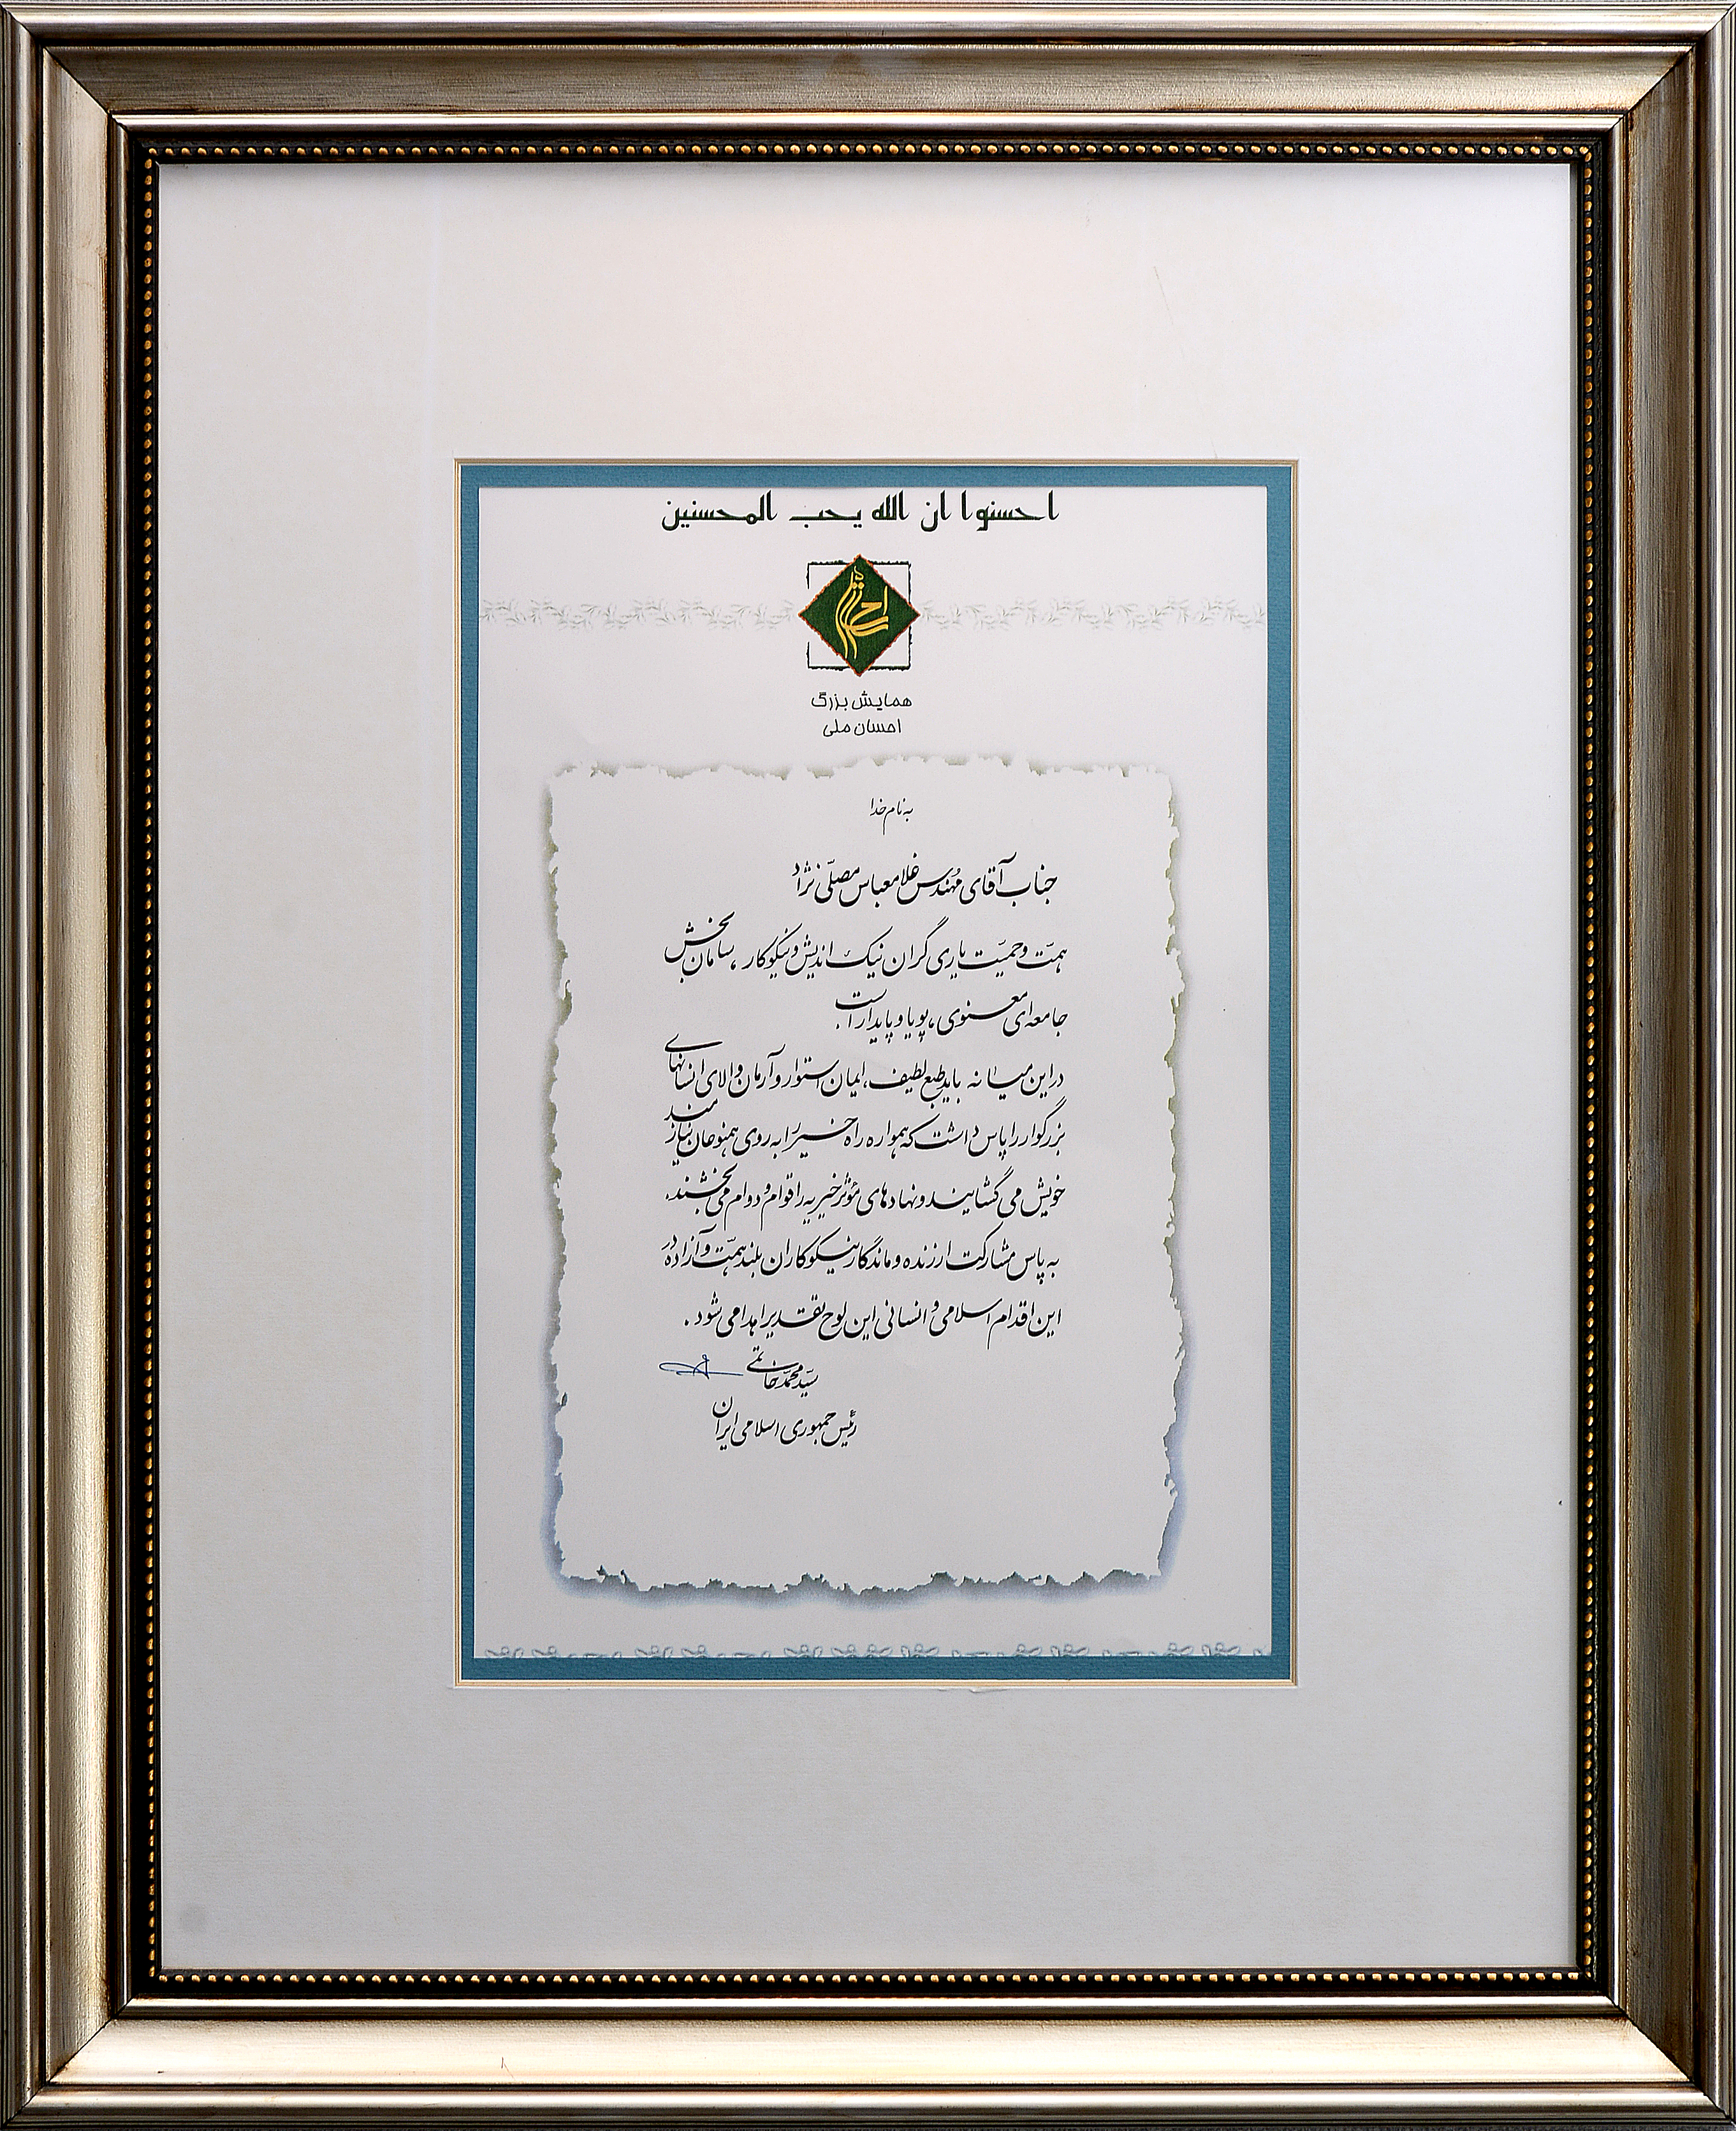 احسنوا ان الله یحب المحسنین
احسان
همایش بزرگ
احسان ملی
به نام خدا
جناب آقای مهندس غلامعباس مصلّی نژاد
همّت و حمیّت یاری گران نیک اندیش و نیکوکار، سامان بخش
جامعه ای معنوی، پویا و پایدار است.
در این میانه باید طبع لطیف، ایمان استوار و آرمان والای انسانهای
بزرگوار را پاس داشت که همواره راه خیر را به روی همنوعان نیازمند
خویش می گشایند و نهادهای مؤثر خیریه را قوام و دوام می بخشند.
به پاس مشارکت ارزنده و ماندگار نیکوکاران بلند همّت و آزاده در
این اقدام اسلامی و انسانی این لوح تقدیر اهدا می شود.
سیّد محمّد خاتمی
رئیس جمهوری اسلامی ایران